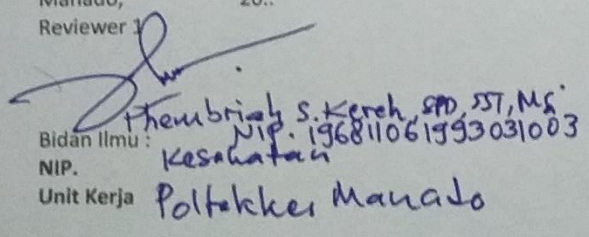 Manado, 20..
Reviewer 1
Phembriah S. Kereh, SPD, SST, MSi
NIP. 196811061993031003
Bidan Ilmu : Kesehatan
NIP.
Unit Kerja Poltekkes Manado